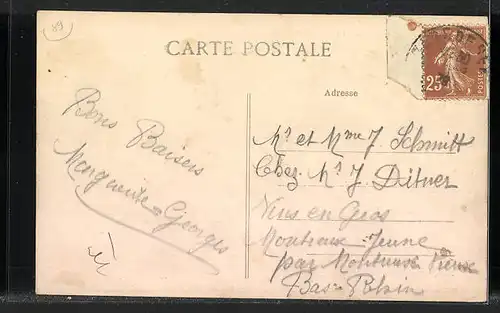 89
CARTE POSTALE
Adresse
25
Bons Baisers
Marguerite = Georges
Mr et Mme J. Schmitt
Chez Mr J. Ditner
Vins en Gros
Montreux-Jeune
par Montreux Vieux
Bas-Rhin